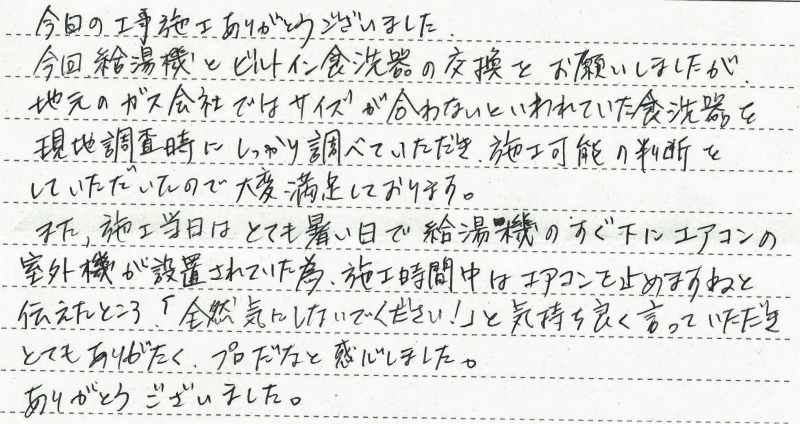 今日の工事施工ありがとうございました.
今回 給湯機とビルトイン食洗器の交換をお願いしましたが、
地元のガス会社ではサイズが合わないといわれていた食洗器を
現地調査時にしっかり調べていただき、施工可能の判断を
していただいたので大変満足しております。
また、施工当日はとても暑い日で給湯機のすぐ下にエアコンの
室外機が設置されていた為、施工時間中はエアコンを止めますねと
伝えたところ、「全然気にしないでください!」と気持ち良く言っていただき
とてもありがたく、プロだなと感心しました。
ありがとうございました。